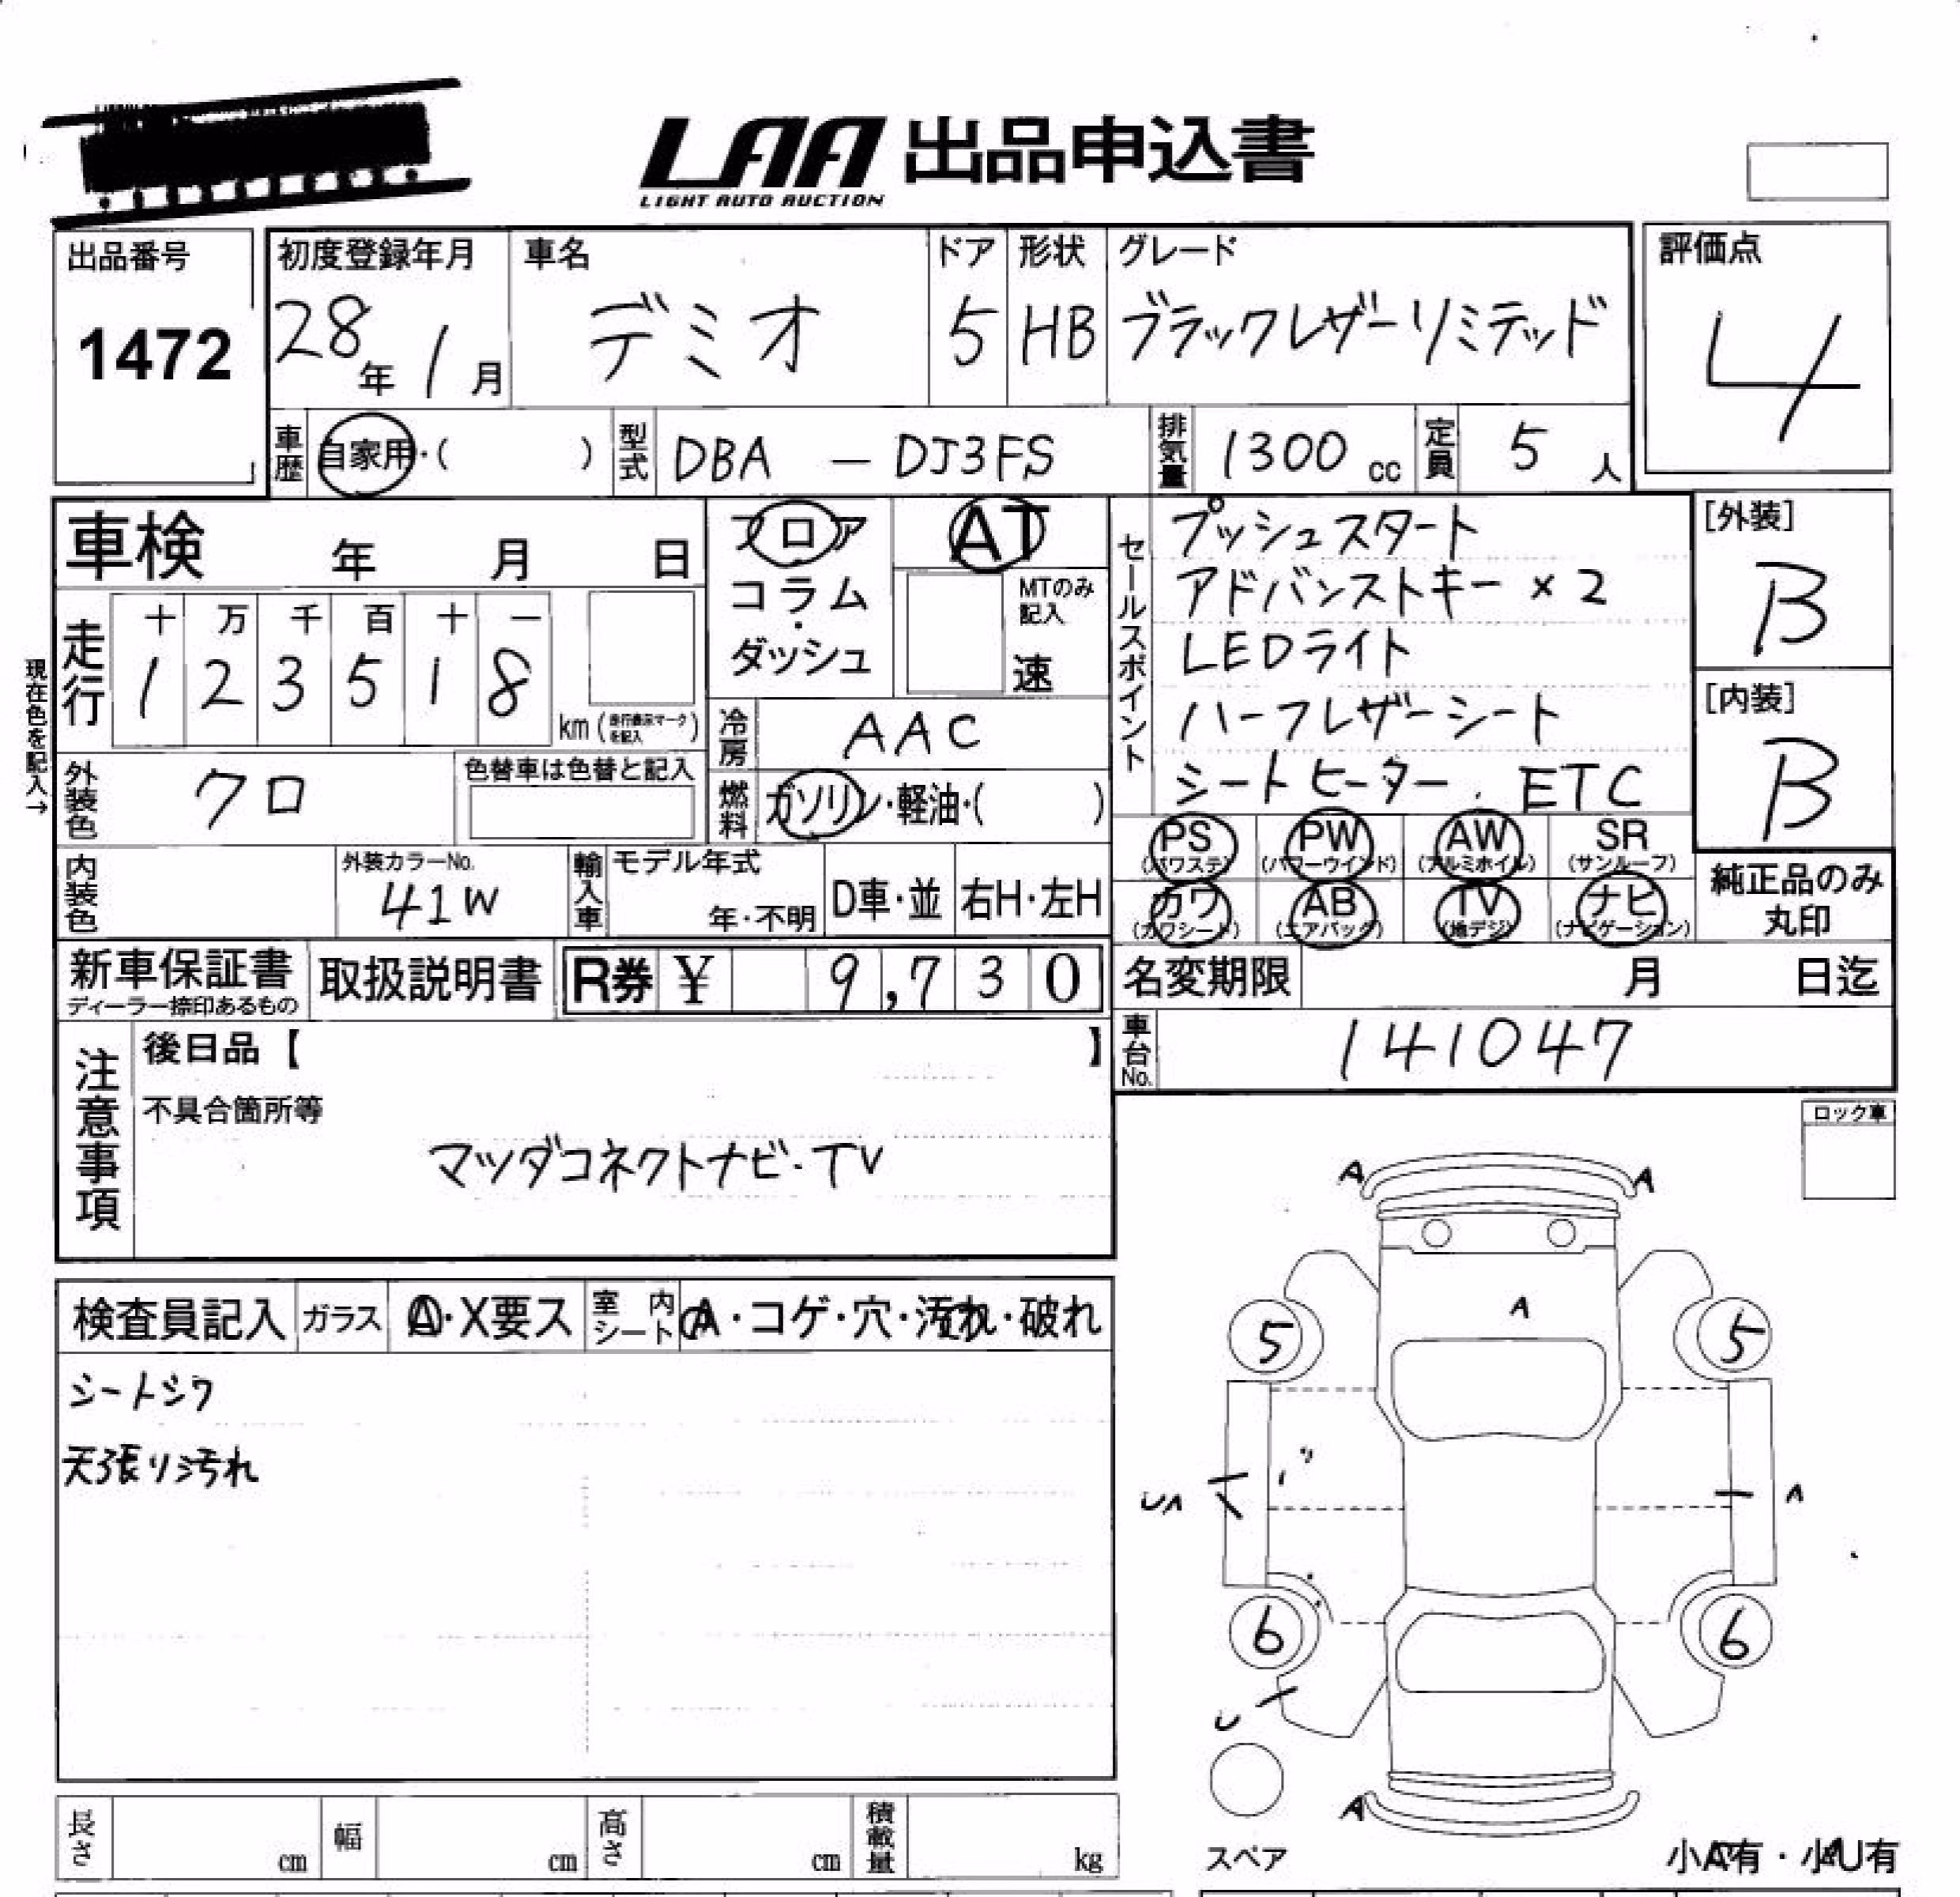 LAA 出品申込書
LIGHT AUTO AUCTION
出品番号 初度登録年月 車名 ドア 形状 グレード 評価点
1472 28年 1月 デミオ 5 HB ブラックレザーリミテッド 4
車歴 自家用・( ) 型式 DBA - DJ3FS 排気量 1300 cc 定員 5 人
車検 年 月 日
フロア
コラム
・
ダッシュ
AT
MTのみ
記入
速
セールスポイント
プッシュスタート
アドバンストキー×2
LEDライト
ハーフレザーシート
シートヒーター. ETC
[外装]
B
[内装]
B
現在色を記入→
走行
十 万 千 百 十 一
1 2 3 5 1 8
km (走行表示マークを記入)
冷房 AAC
燃料 ガソリン・軽油・( )
外装色 クロ
色替車は色替と記入
PS (パワステ) PW (パワーウインド) AW (アルミホイル) SR (サンルーフ)
カワ (カワシート) AB (エアバック) TV (地デジ) ナビ (ナビゲーション)
純正品のみ
丸印
内装色
外装カラーNo.
41W
輸入車
モデル年式
年・不明
D車・並 右H・左H
新車保証書
ディーラー捺印あるもの
取扱説明書
R券 ¥ 9,730
名変期限 月 日迄
車台No. 141047
注意事項
後日品【 】
不具合箇所等
マツダコネクトナビ・TV
ロック車
検査員記入 ガラス A・X要ス 室内シート A・コゲ・穴・汚れ・破れ
シートシワ
天張り汚れ
A A
A
5 5
UA A
6 6
U
A
スペア
小A有・小U有
長さ cm 幅 cm 高さ cm 積載量 kg